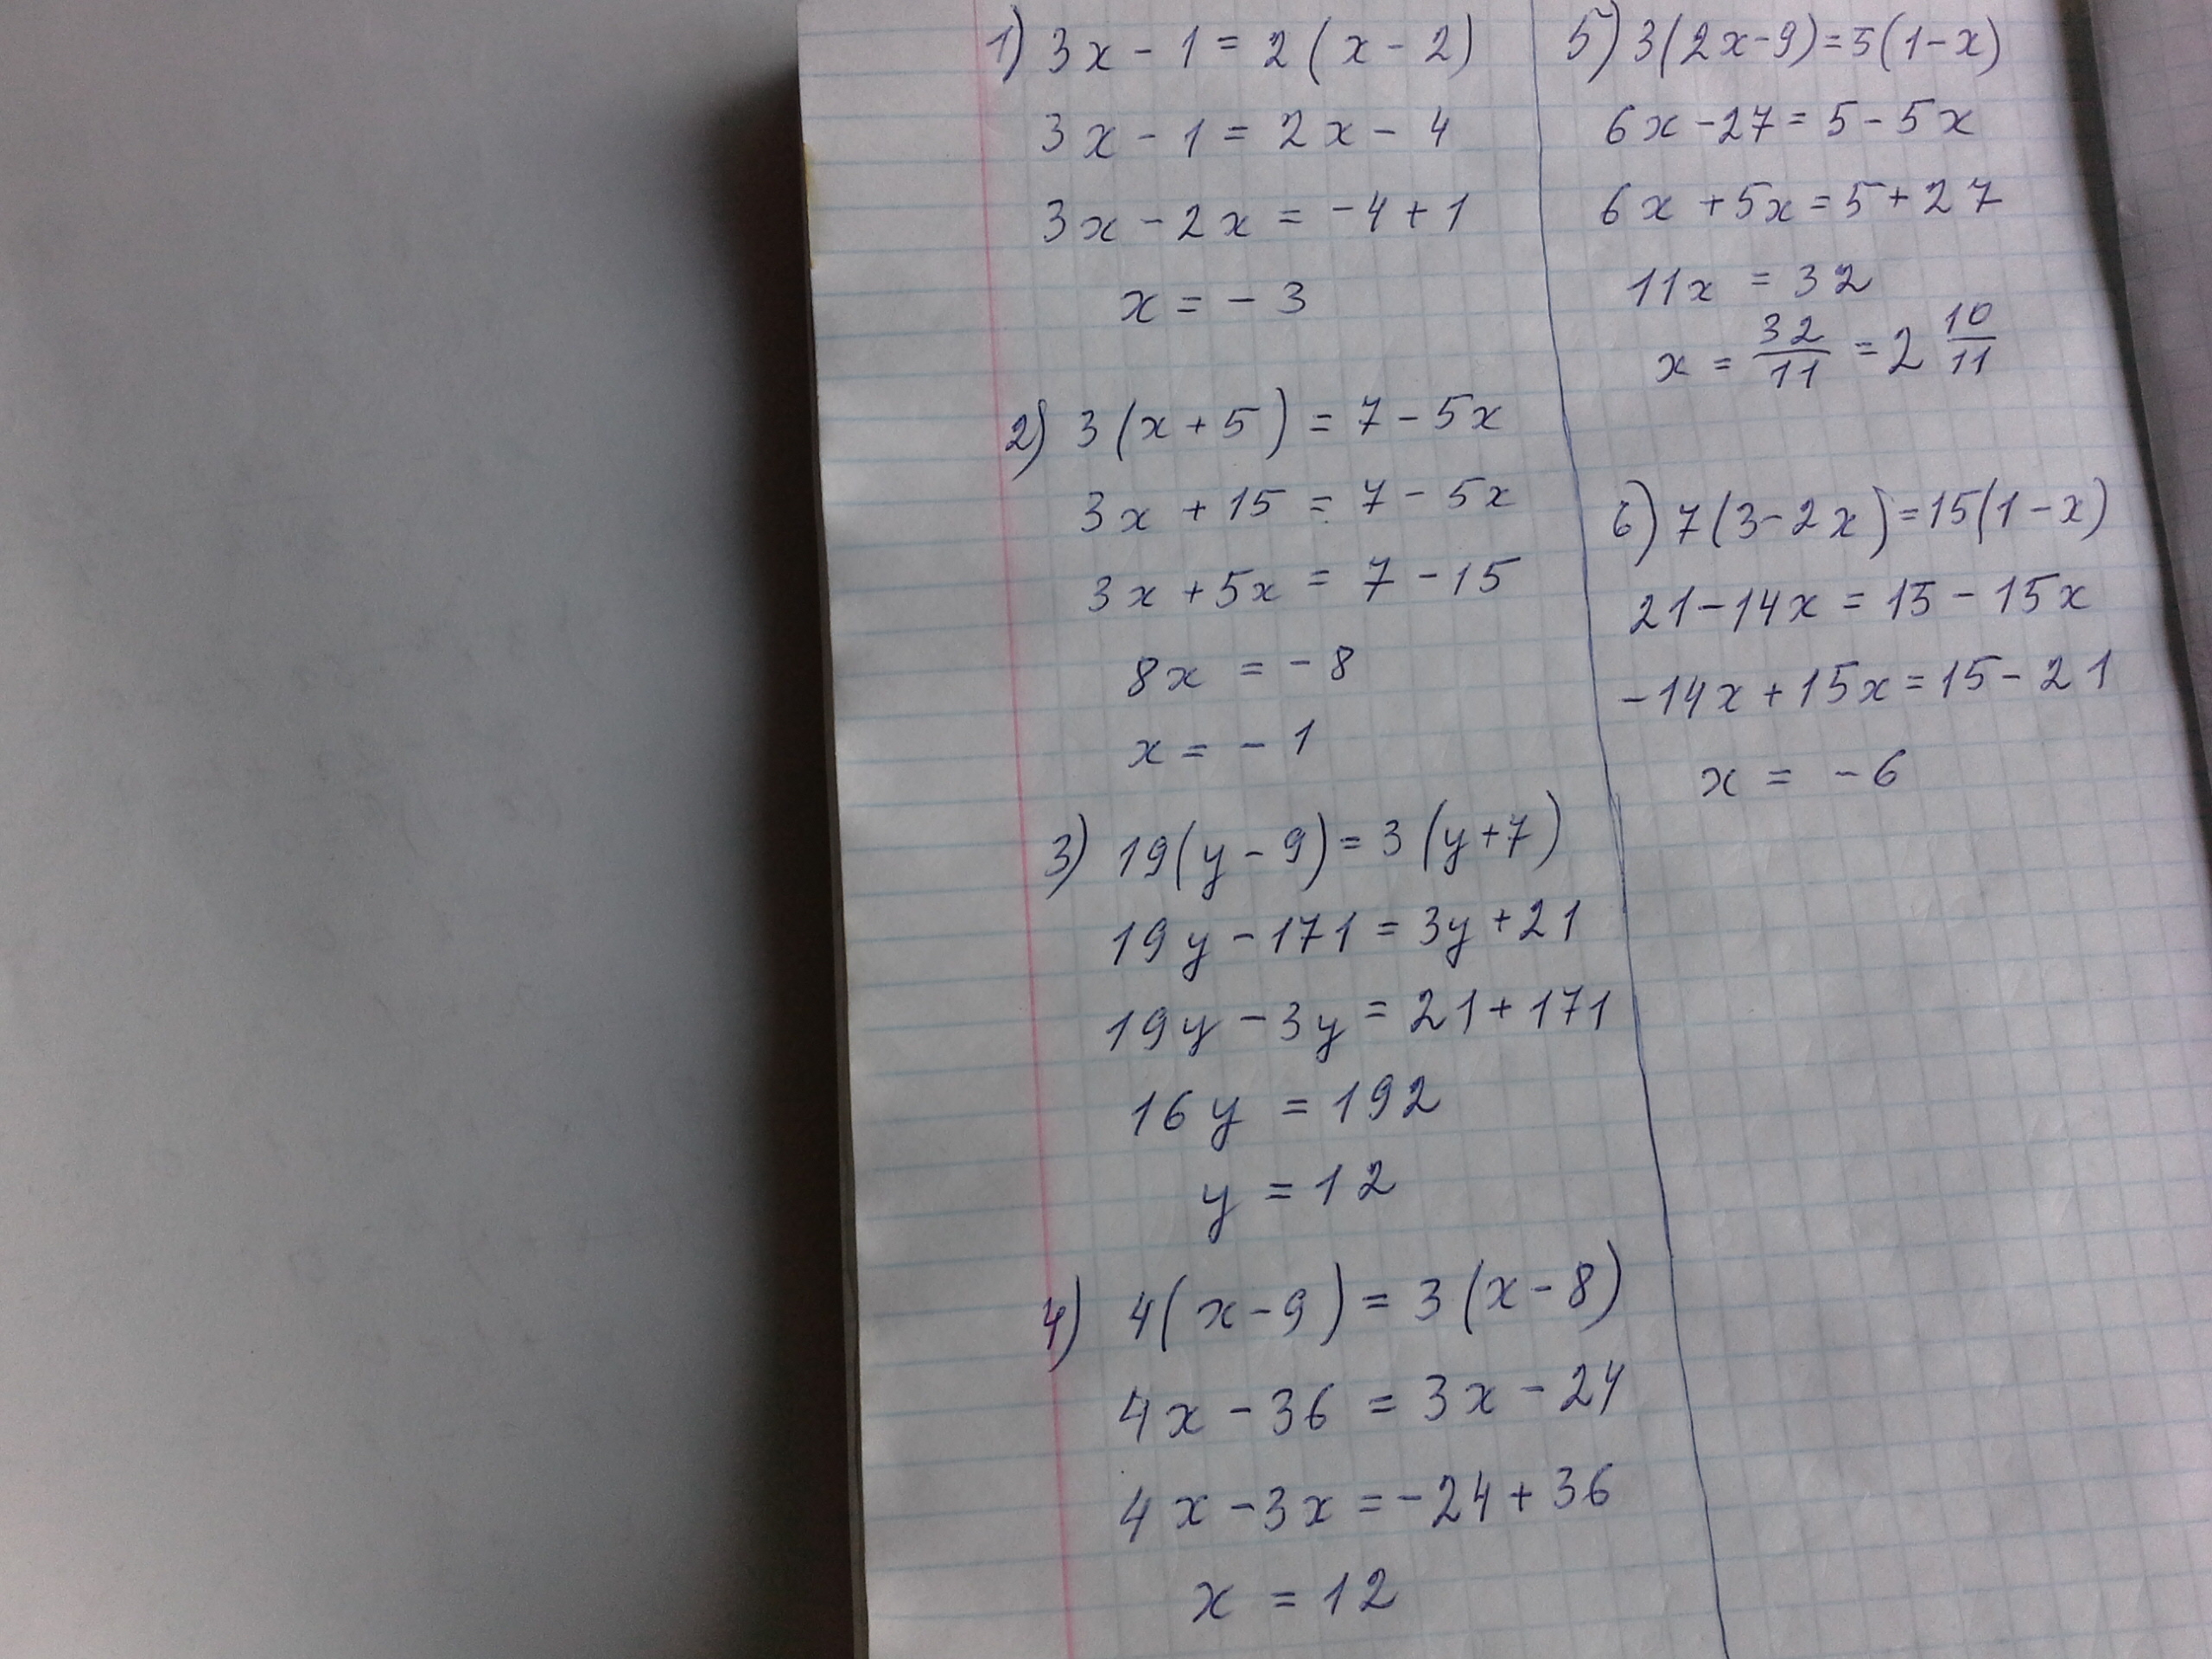 1) 3x - 1 = 2 (x - 2)
3x - 1 = 2x - 4
3x - 2x = -4 + 1
x = - 3
2) 3 (x + 5) = 7 - 5x
3x + 15 = 7 - 5x
3x + 5x = 7 - 15
8x = - 8
x = - 1
3) 19(y - 9) = 3 (y + 7)
19y - 171 = 3y + 21
19y - 3y = 21 + 171
16y = 192
y = 12
4) 4(x - 9) = 3 (x - 8)
4x - 36 = 3x - 24
4x - 3x = -24 + 36
x = 12
5) 3(2x - 9) = 5(1 - x)
6x - 27 = 5 - 5x
6x + 5x = 5 + 27
11x = 32
x = 32/11 = 2 10/11
6) 7(3 - 2x) = 15(1 - x)
21 - 14x = 15 - 15x
-14x + 15x = 15 - 21
x = -6